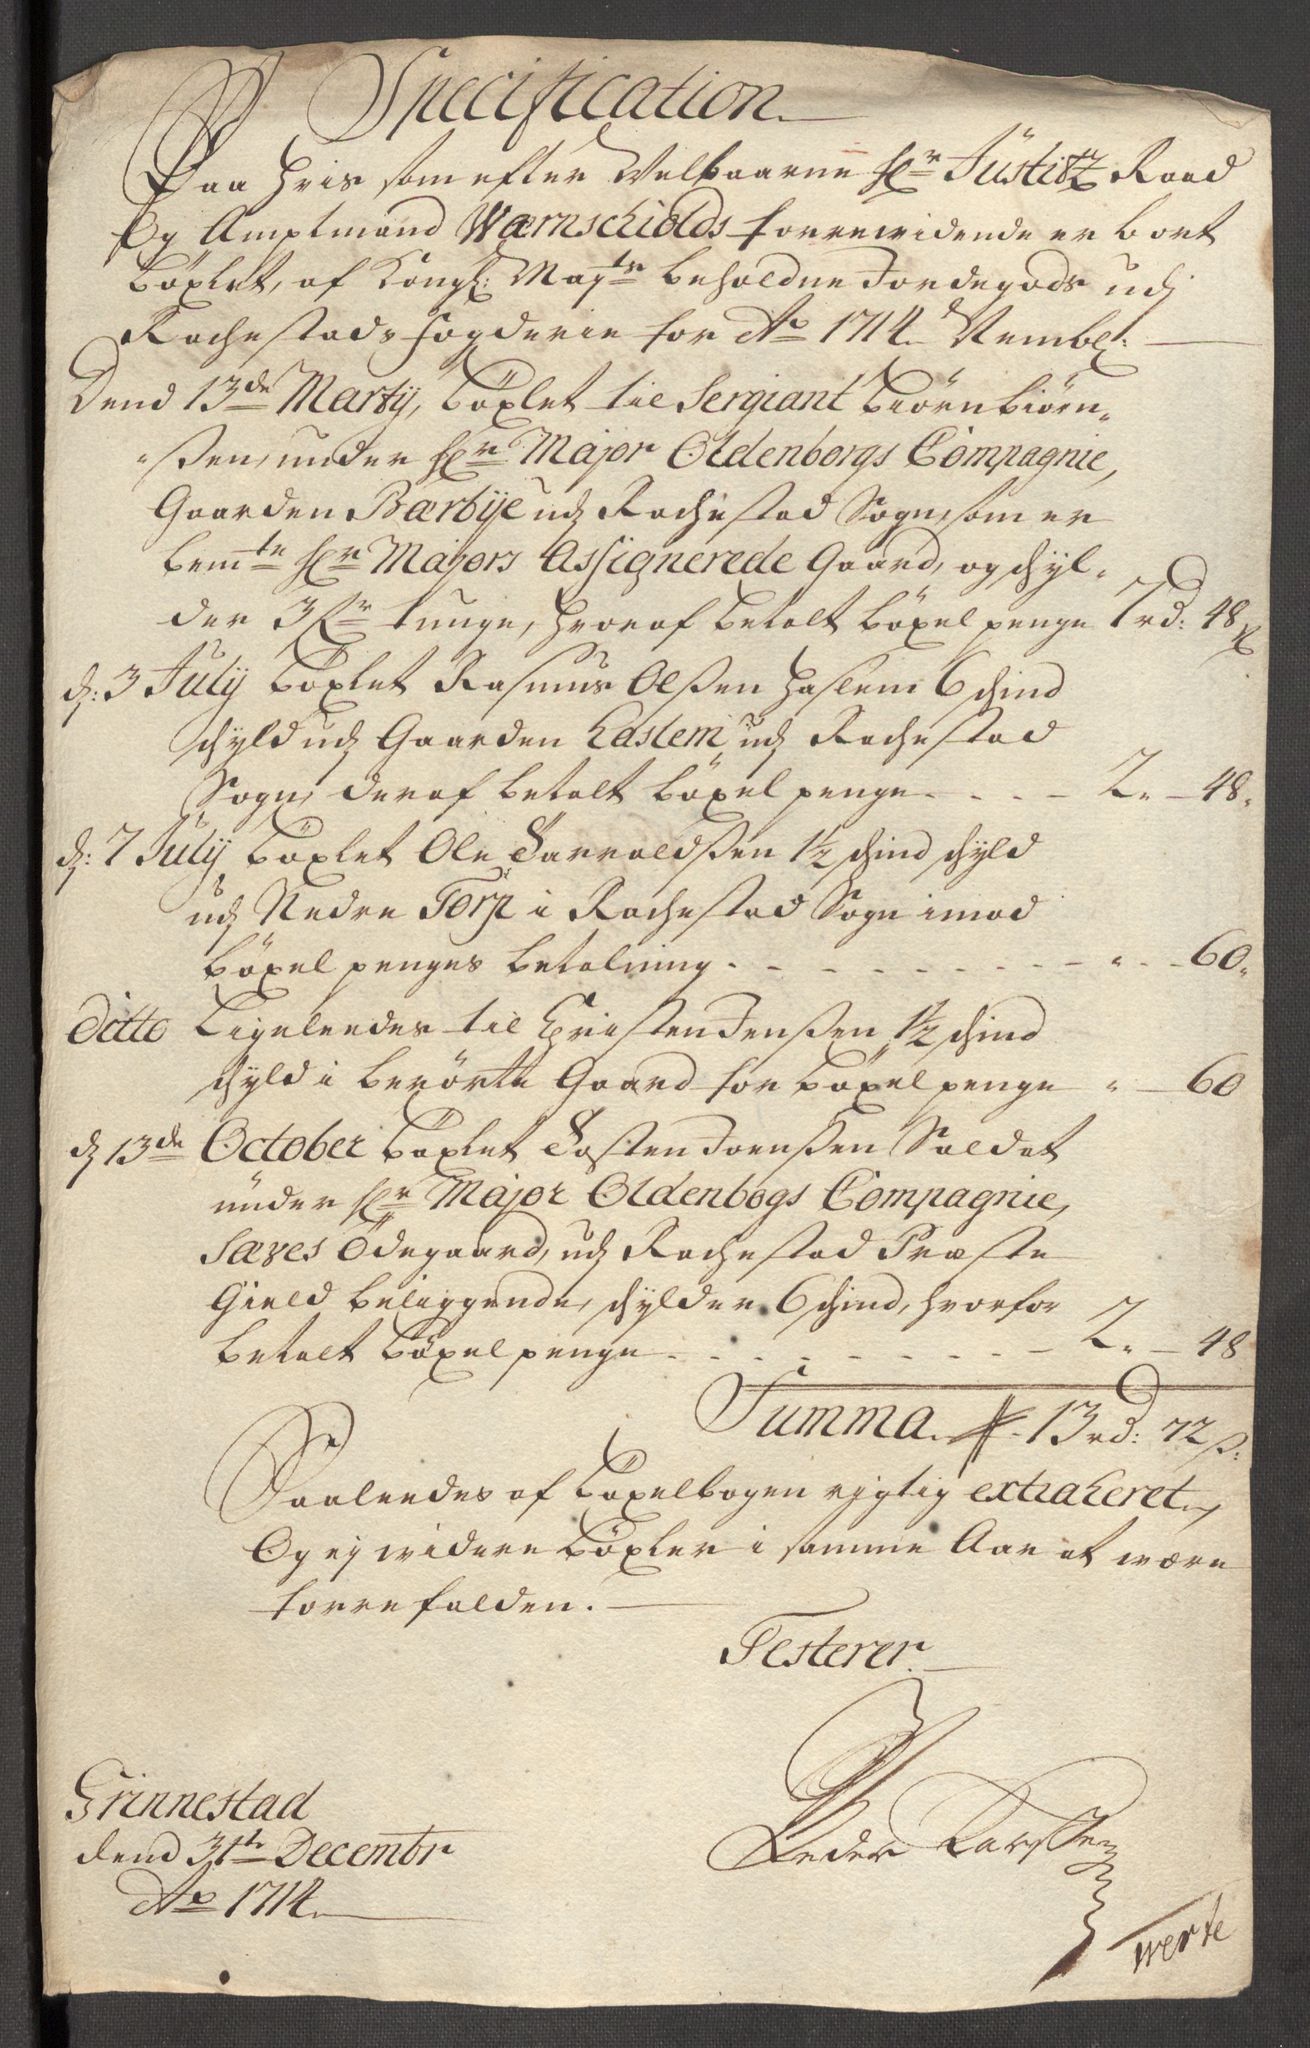 Specification
Paa hvis som efter Welbaarne Hr Justitz Raad
Og Amptmand Wærnschiolds forrewidende er bort
böxlet, af Kongl: Maytz beholdne Jordegods udj
Rachestads fogderie for Ao 1714. Nembl:
Dend 13de Martij, böxlet til Sergiant Biörn Biörn-
-ßen, under Hr Major Oldenborgs Compagnie,
Gaarden Bærbÿe udj Rachestad Sogn, som er
bemte Hr Majors Assignerede Gaard, og schyl-
der 3 Sk tunge, hvoraf betalt böxel penge 7 rd: 48 s
d: 3 July böxlet Rasmus Olßen Haslem 6 schind
schyld udj Gaarden Haslem, udj Rachestad
Sogn, deraf betalt böxel penge - - - - 2 „ - 48 „
d: 7 July böxlet Ole Tarraldßen 1½ schind schyld
udj Nedre Torp i Rachestad Sogn imod
böxel penges betalning - - - - - - - - - „ - 60 „
ditto Ligeleedes til Christen Jenßen 1½ schind
schyld i berörte Gaard for böxel penge „ - 60
d 13de October böxlet Tosten Joenßen Soldat
under Hr Major Oldenbogs Compagnie,
Sæves Ödegaard, udj Rachestad Præste
Gield beliggende, schylder 6 schind, hvorfor
betalt böxel penge - - - - - - - - - 2 „ - 48
Summa - 13 rd: 72 ß:
Saaleedes af böxelbogen rigtig extraheret,
Og ej widere böxler i samme Aar at wære
forrefalden.
Testerer
Peder Larssen
Grinnestad
dend 31te Decembr
Ao 1714.
werte